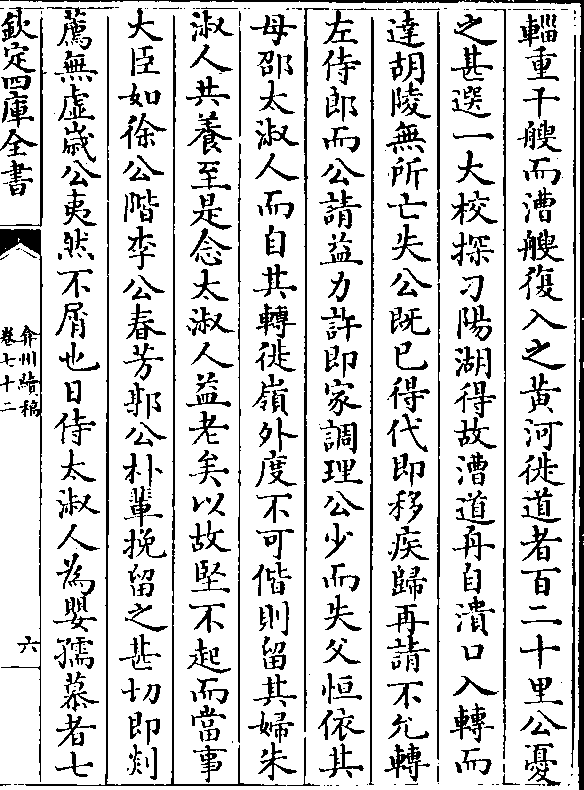 輜重千艘而漕艘復入之黃河徙道者百二十里公憂
之甚選一大校探刁陽湖得故漕道舟自瀆口入轉而
達胡陵無所亡失公既已得代即移疾歸再請不允轉
左侍郎而公請益力許即家調理公少而失父恒依其
母邵太淑人而自其轉徙嶺外度不可偕則留其婦朱
淑人共養至是念太淑人益老矣以故堅不起而當事
大臣如徐公階李公春芳郭公朴輩挽留之甚切即剡
薦無虛歲公夷然不屑也日侍太淑人為嬰孺慕者七
欽定四庫全書
弇州續稿
卷七十二
六